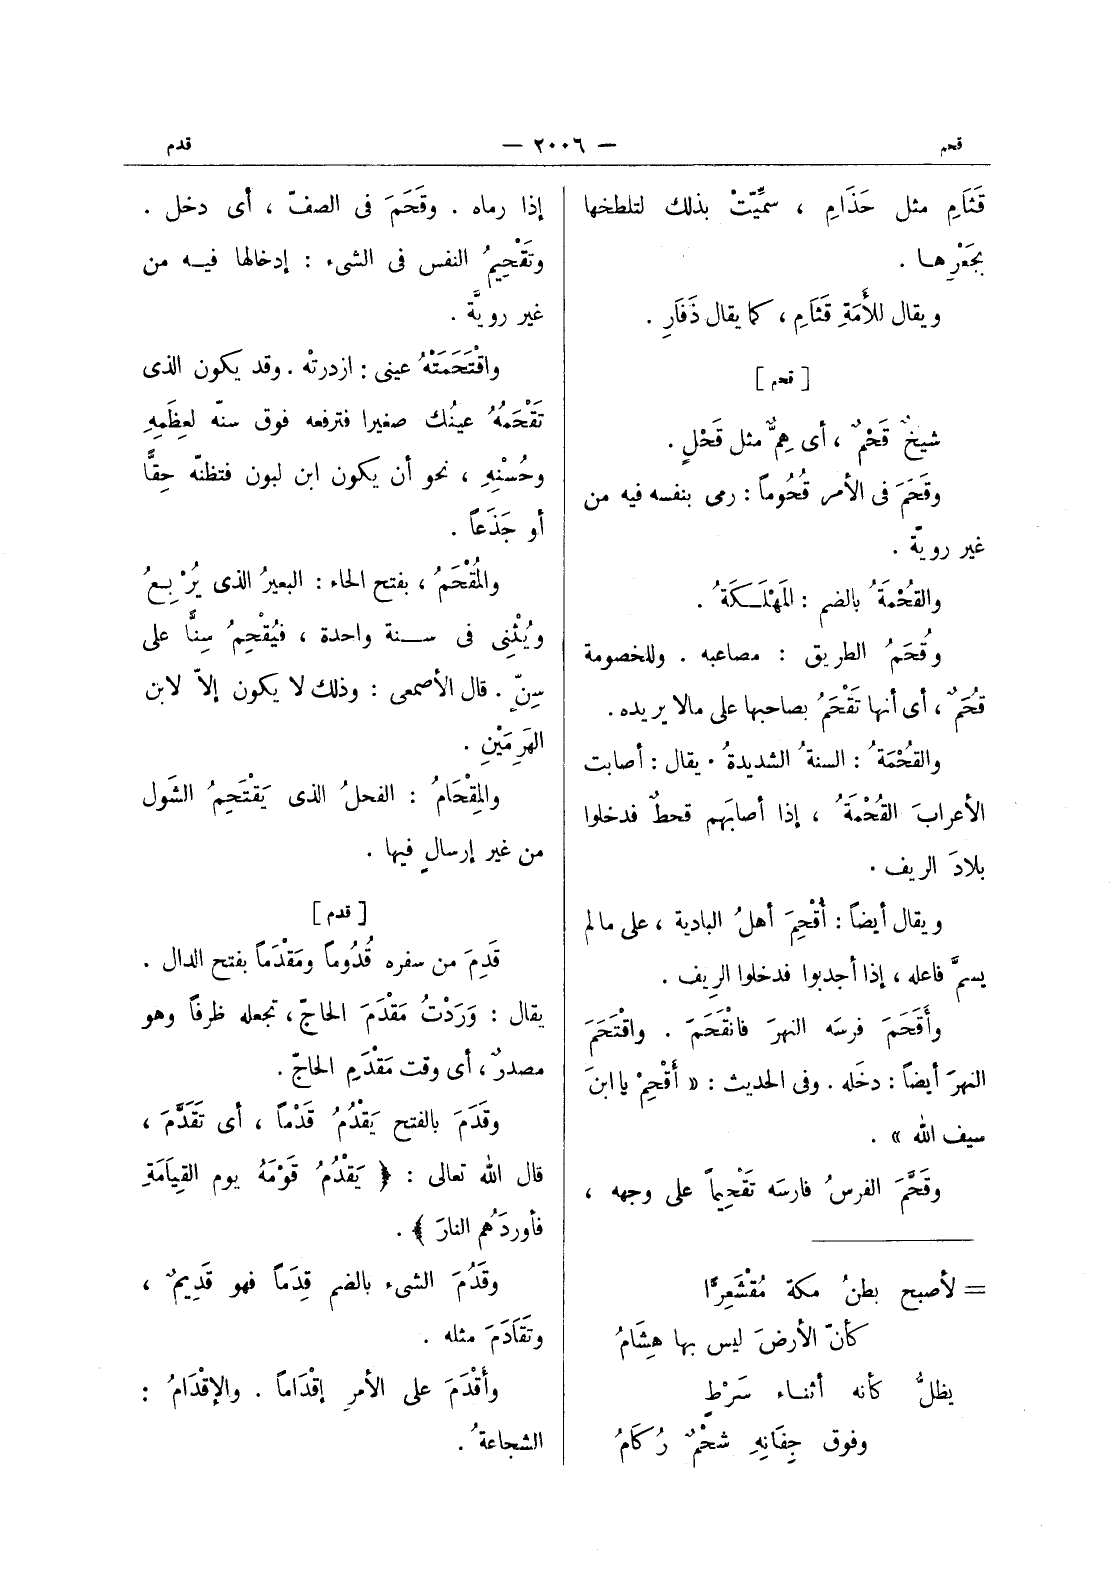 قحم — ٢٠٠٦ — قدم
قَثَامِ مثل حَذَامِ ، سمِّيّتْ بذلك لتلطخها
بجَعْرِها .
ويقال للأَمَةِ قَثَامِ ، كما يقال ذَفَارِ .
[ قحم ]
شيخٌ قَحْمٌ ، أى هِمٌّ مثل قَحْلٍ .
وقَحَمَ فى الأمر قُحُوماً : رمى بنفسه فيه من
غير رويّة .
والقُحْمَةُ بالضم : المَهْلَكَةُ .
وقُحَمُ الطريق : مصاعبه . وللخصومة
قُحَمٌ ، أى أنها تَقْحَمُ بصاحبها على مالا يريده .
والقُحْمَةُ : السنةُ الشديدةُ . يقال : أصابت
الأعرابَ القُحْمَةُ ، إذا أصابَهم قحطٌ فدخلوا
بلادَ الريف .
ويقال أيضاً : أُقْحِمَ أهلُ البادية ، على مالم
يسمَّ فاعله ، إذا أجدبوا فدخلوا الرِيف .
وأَقَحَمَ فرسَه النهرَ فانْقَحَمَ . واقْتَحَمَ
النهرَ أيضاً : دخَله . وفى الحديث : « أَقْحِمْ يا ابنَ
سيف الله » .
وقَحَّمَ الفرسُ فارسَه تَقْحِيماً على وجهه ،
= لأصبح بطنُ مكة مُقْشَعِرًّا
كأنّ الأرضَ ليس بها هِشَامُ
يظلُّ كأنه أثناء سَرْطٍ
وفوق جِفَانِهِ شحْمٌ رُكَامُ
إذا رماه . وقَحَمَ فى الصفّ ، أى دخل .
وتَقْحِيمُ النفس فى الشىء : إدخالها فيه من
غير رويَّة .
واقْتَحَمَتْهُ عينى : ازدرتْه . وقد يكون الذى
تَقْحَمُهُ عينُك صغيرا فترفعه فوق سنّه لعِظَمِهِ
وحُسْنِهِ ، نحو أن يكون ابن لبون فتظنّه حِقًّا
أو جَذَعاً .
والمُقْحَمُ ، بفتح الحاء : البعيرُ الذى يُرْبِعُ
ويُثْنِى فى سنة واحدة ، فيُقْحِمُ سِنًّا على
سِنٍّ . قال الأصمعى : وذلك لا يكون إلاّ لابن
الهَرِمَيْنِ .
والمِقْحَامُ : الفحلُ الذى يَقْتَحِمُ الشَول
من غير إرسالٍ فيها .
[ قدم ]
قَدِمَ من سفره قُدُوماً ومَقْدَماً بفتح الدال .
يقال : وَرَدْتُ مَقْدَمَ الحاجّ ، تجعله ظرفاً وهو
مصدرٌ ، أى وقت مَقْدَمِ الحاجّ .
وقَدَمَ بالفتح يَقْدُمُ قَدْماً ، أى تَقَدَّمَ ،
قال الله تعالى : ﴿ يَقْدُمُ قَوْمَهُ يوم القِيَامَةِ
فأوردَهُم النارَ ﴾ .
وقَدُمَ الشىء بالضم قِدَماً فهو قَدِيمٌ ،
وتَقَادَمَ مثله .
وأَقْدَمَ على الأمرِ إقْدَاماً . والإقْدَامُ :
الشجاعةُ .